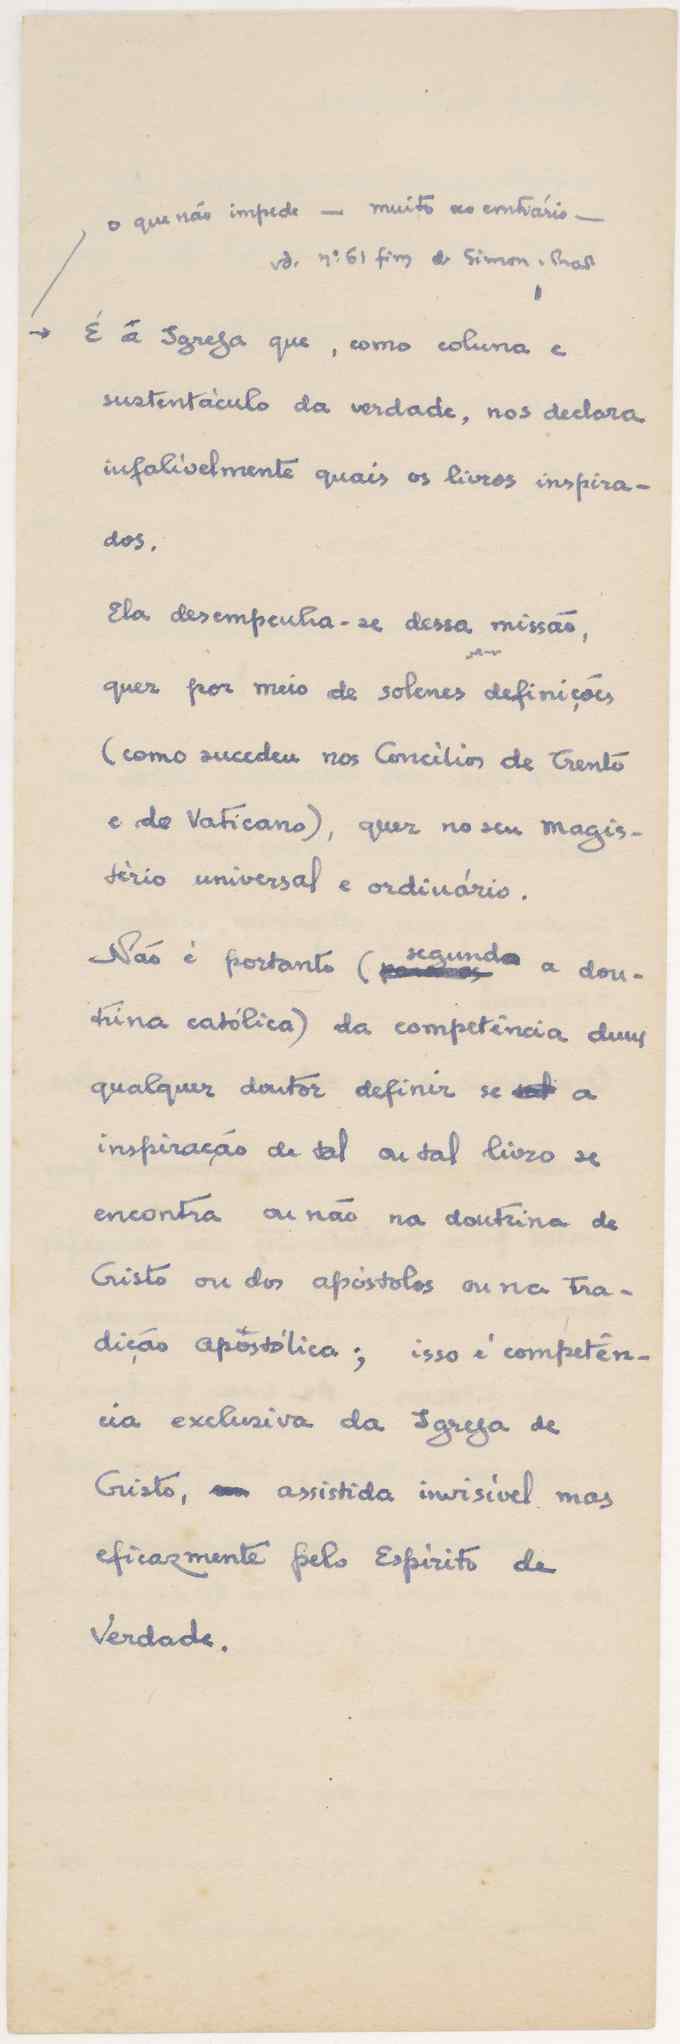 o que não impede — muito ao contrário —
vd. nº 61 fim de Simon-Prad
→ É a Igreja que, como coluna e
sustentáculo da verdade, nos declara
infalivelmente quais os livros inspira-
dos.
Ela desempenha-se dessa missão,
quer por meio de solenes definições
(como sucedeu nos Concílios de Trento
e de Vaticano), quer no seu magis-
tério universal e ordinário.
Não é portanto (segundo a dou-
trina católica) da competência dum
qualquer doutor definir se a
inspiração de tal ou tal livro se
encontra ou não na doutrina de
Cristo ou dos apóstolos ou na Tra-
dição apostólica; isso é competên-
cia exclusiva da Igreja de
Cristo, assistida invisível mas
eficazmente pelo Espírito de
Verdade.